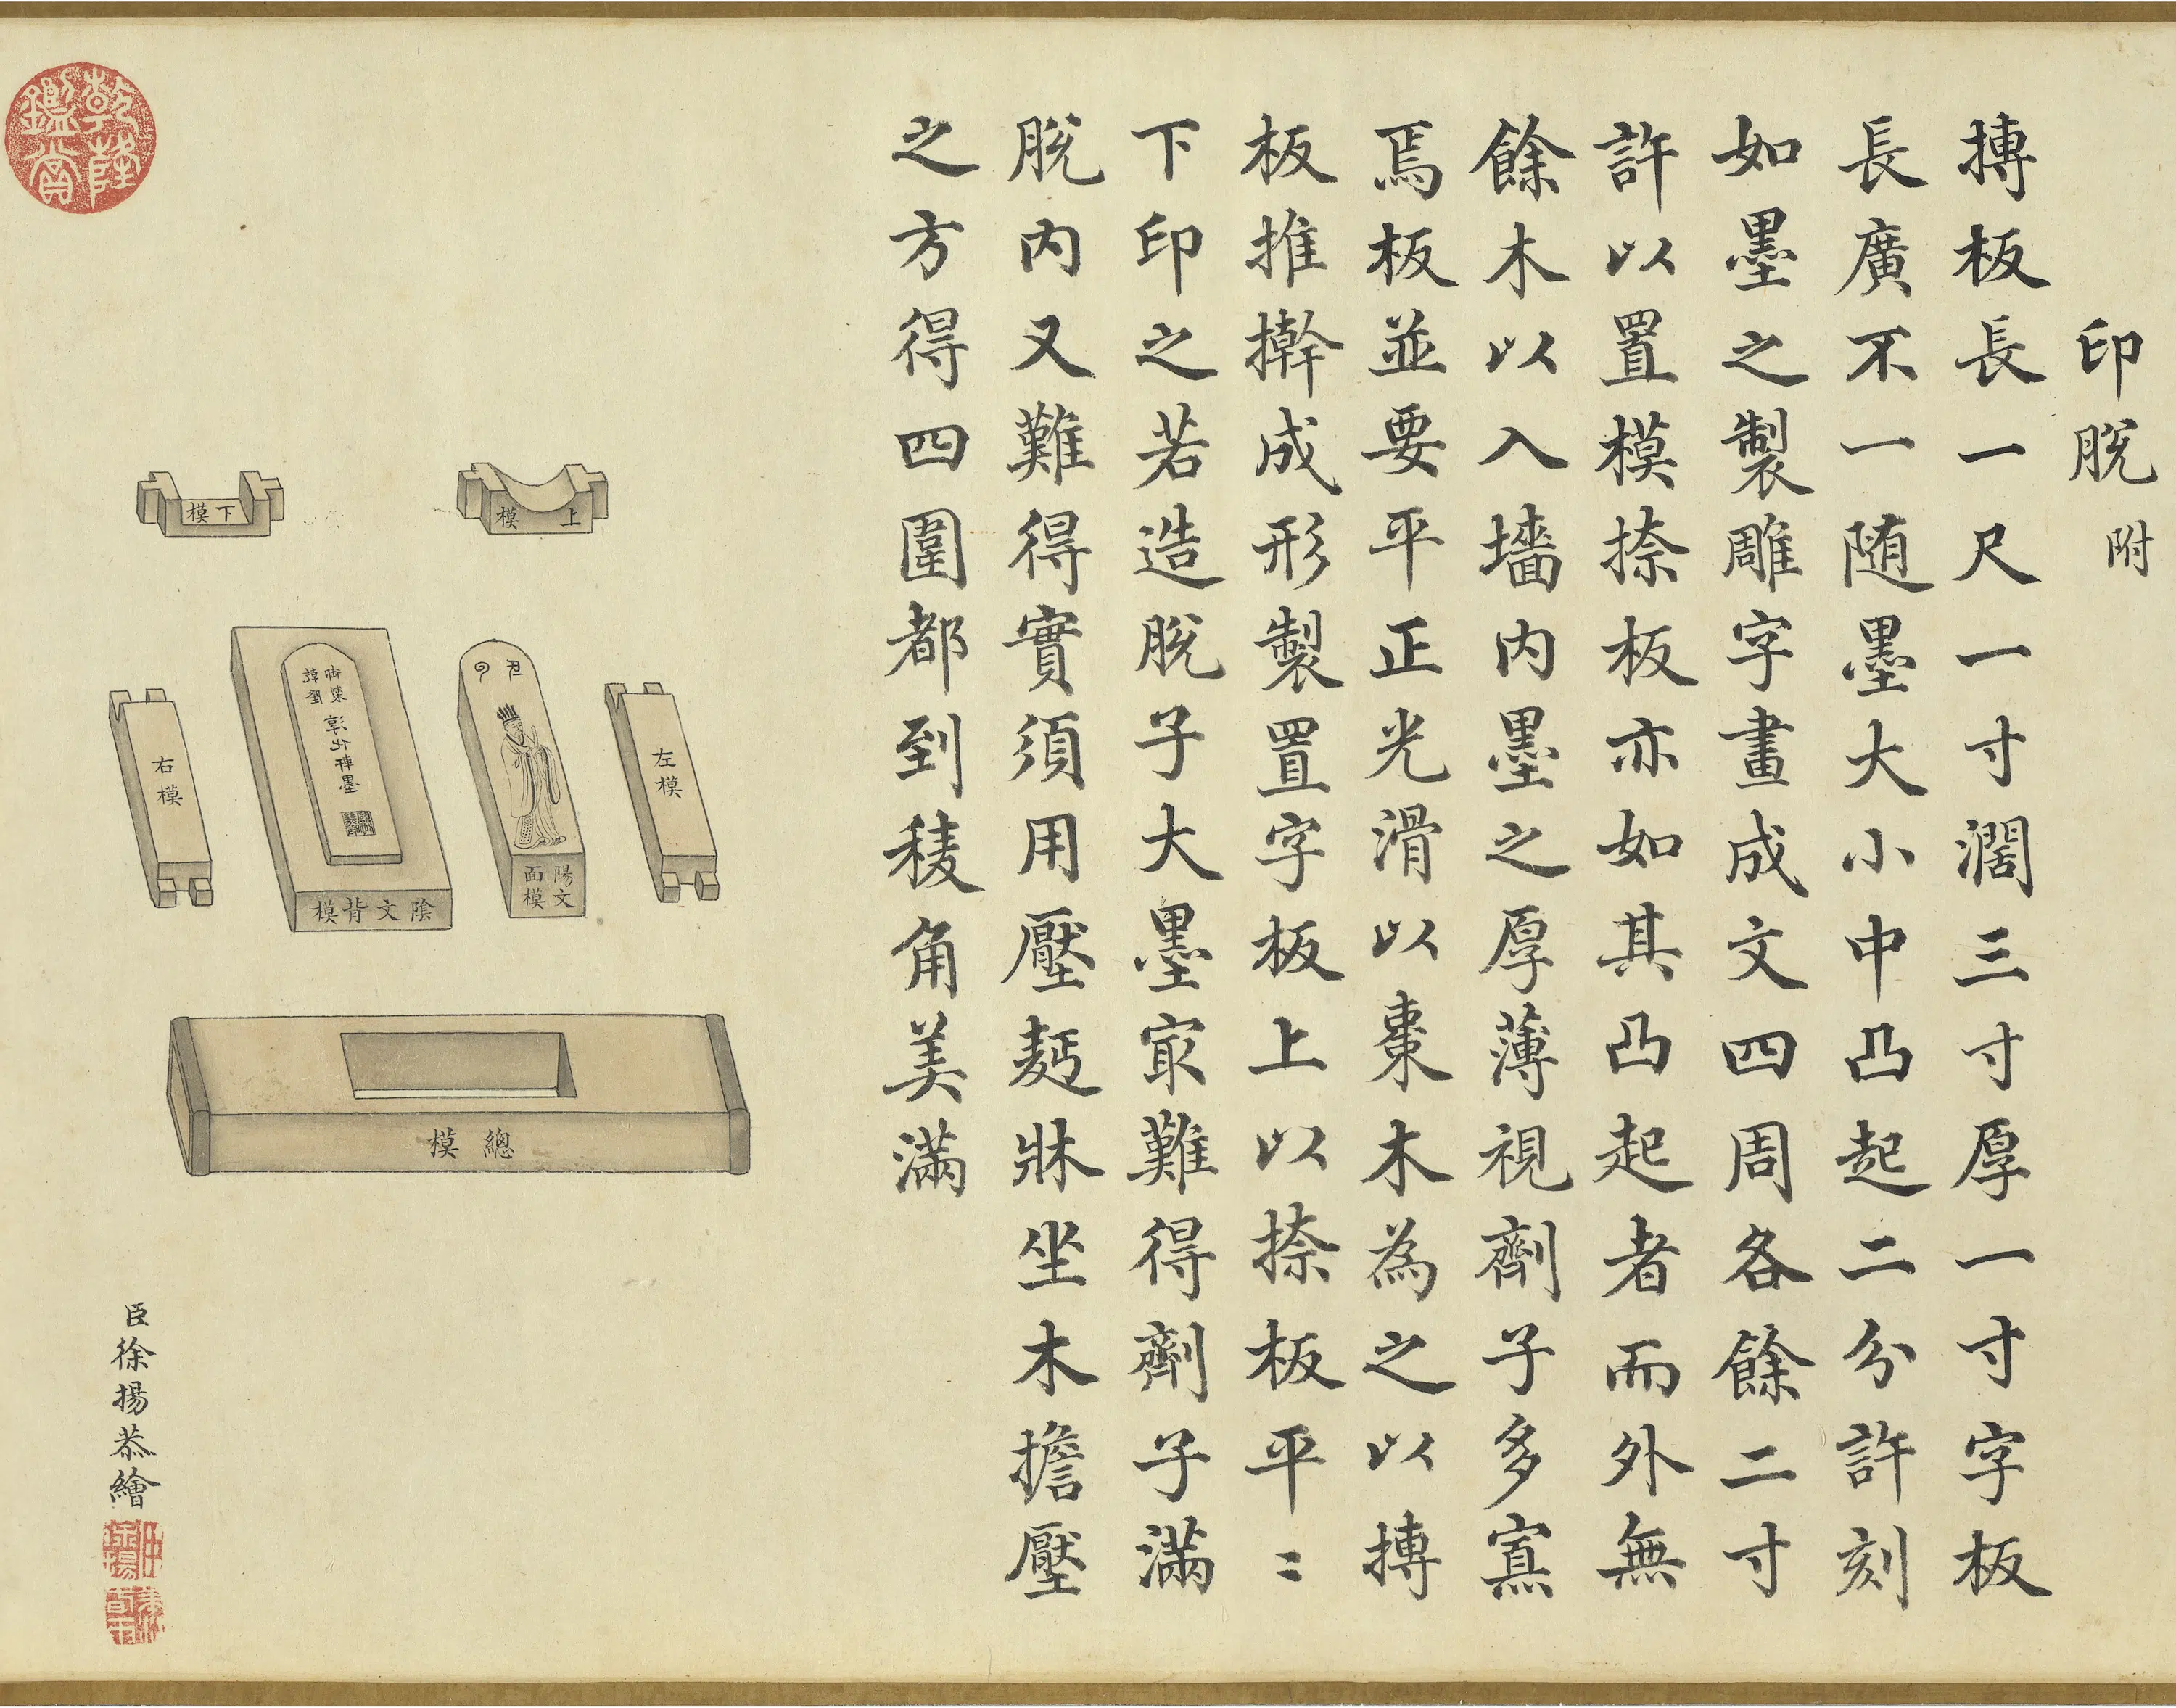 印脫 附
摶板長一尺一寸濶三寸厚一寸字板
長廣不一随墨大小中凸起二分許刻
如墨之製雕字畫成文四周各餘二寸
許以置模捺板亦如其凸起者而外無
餘木以入墻内墨之厚薄視劑子多寡
焉板並要平正光滑以棗木為之以摶
板推擀成形製置字板上以捺板平〻
下印之若造脫子大墨㝡難得劑子滿
脫内又難得實須用壓麪牀坐木擔壓
之方得四圍都到稜角美滿
上模
下模
左模
陽文面模
陰文背模
右模
總模
臣徐揚恭繪
乾隆鑑賞